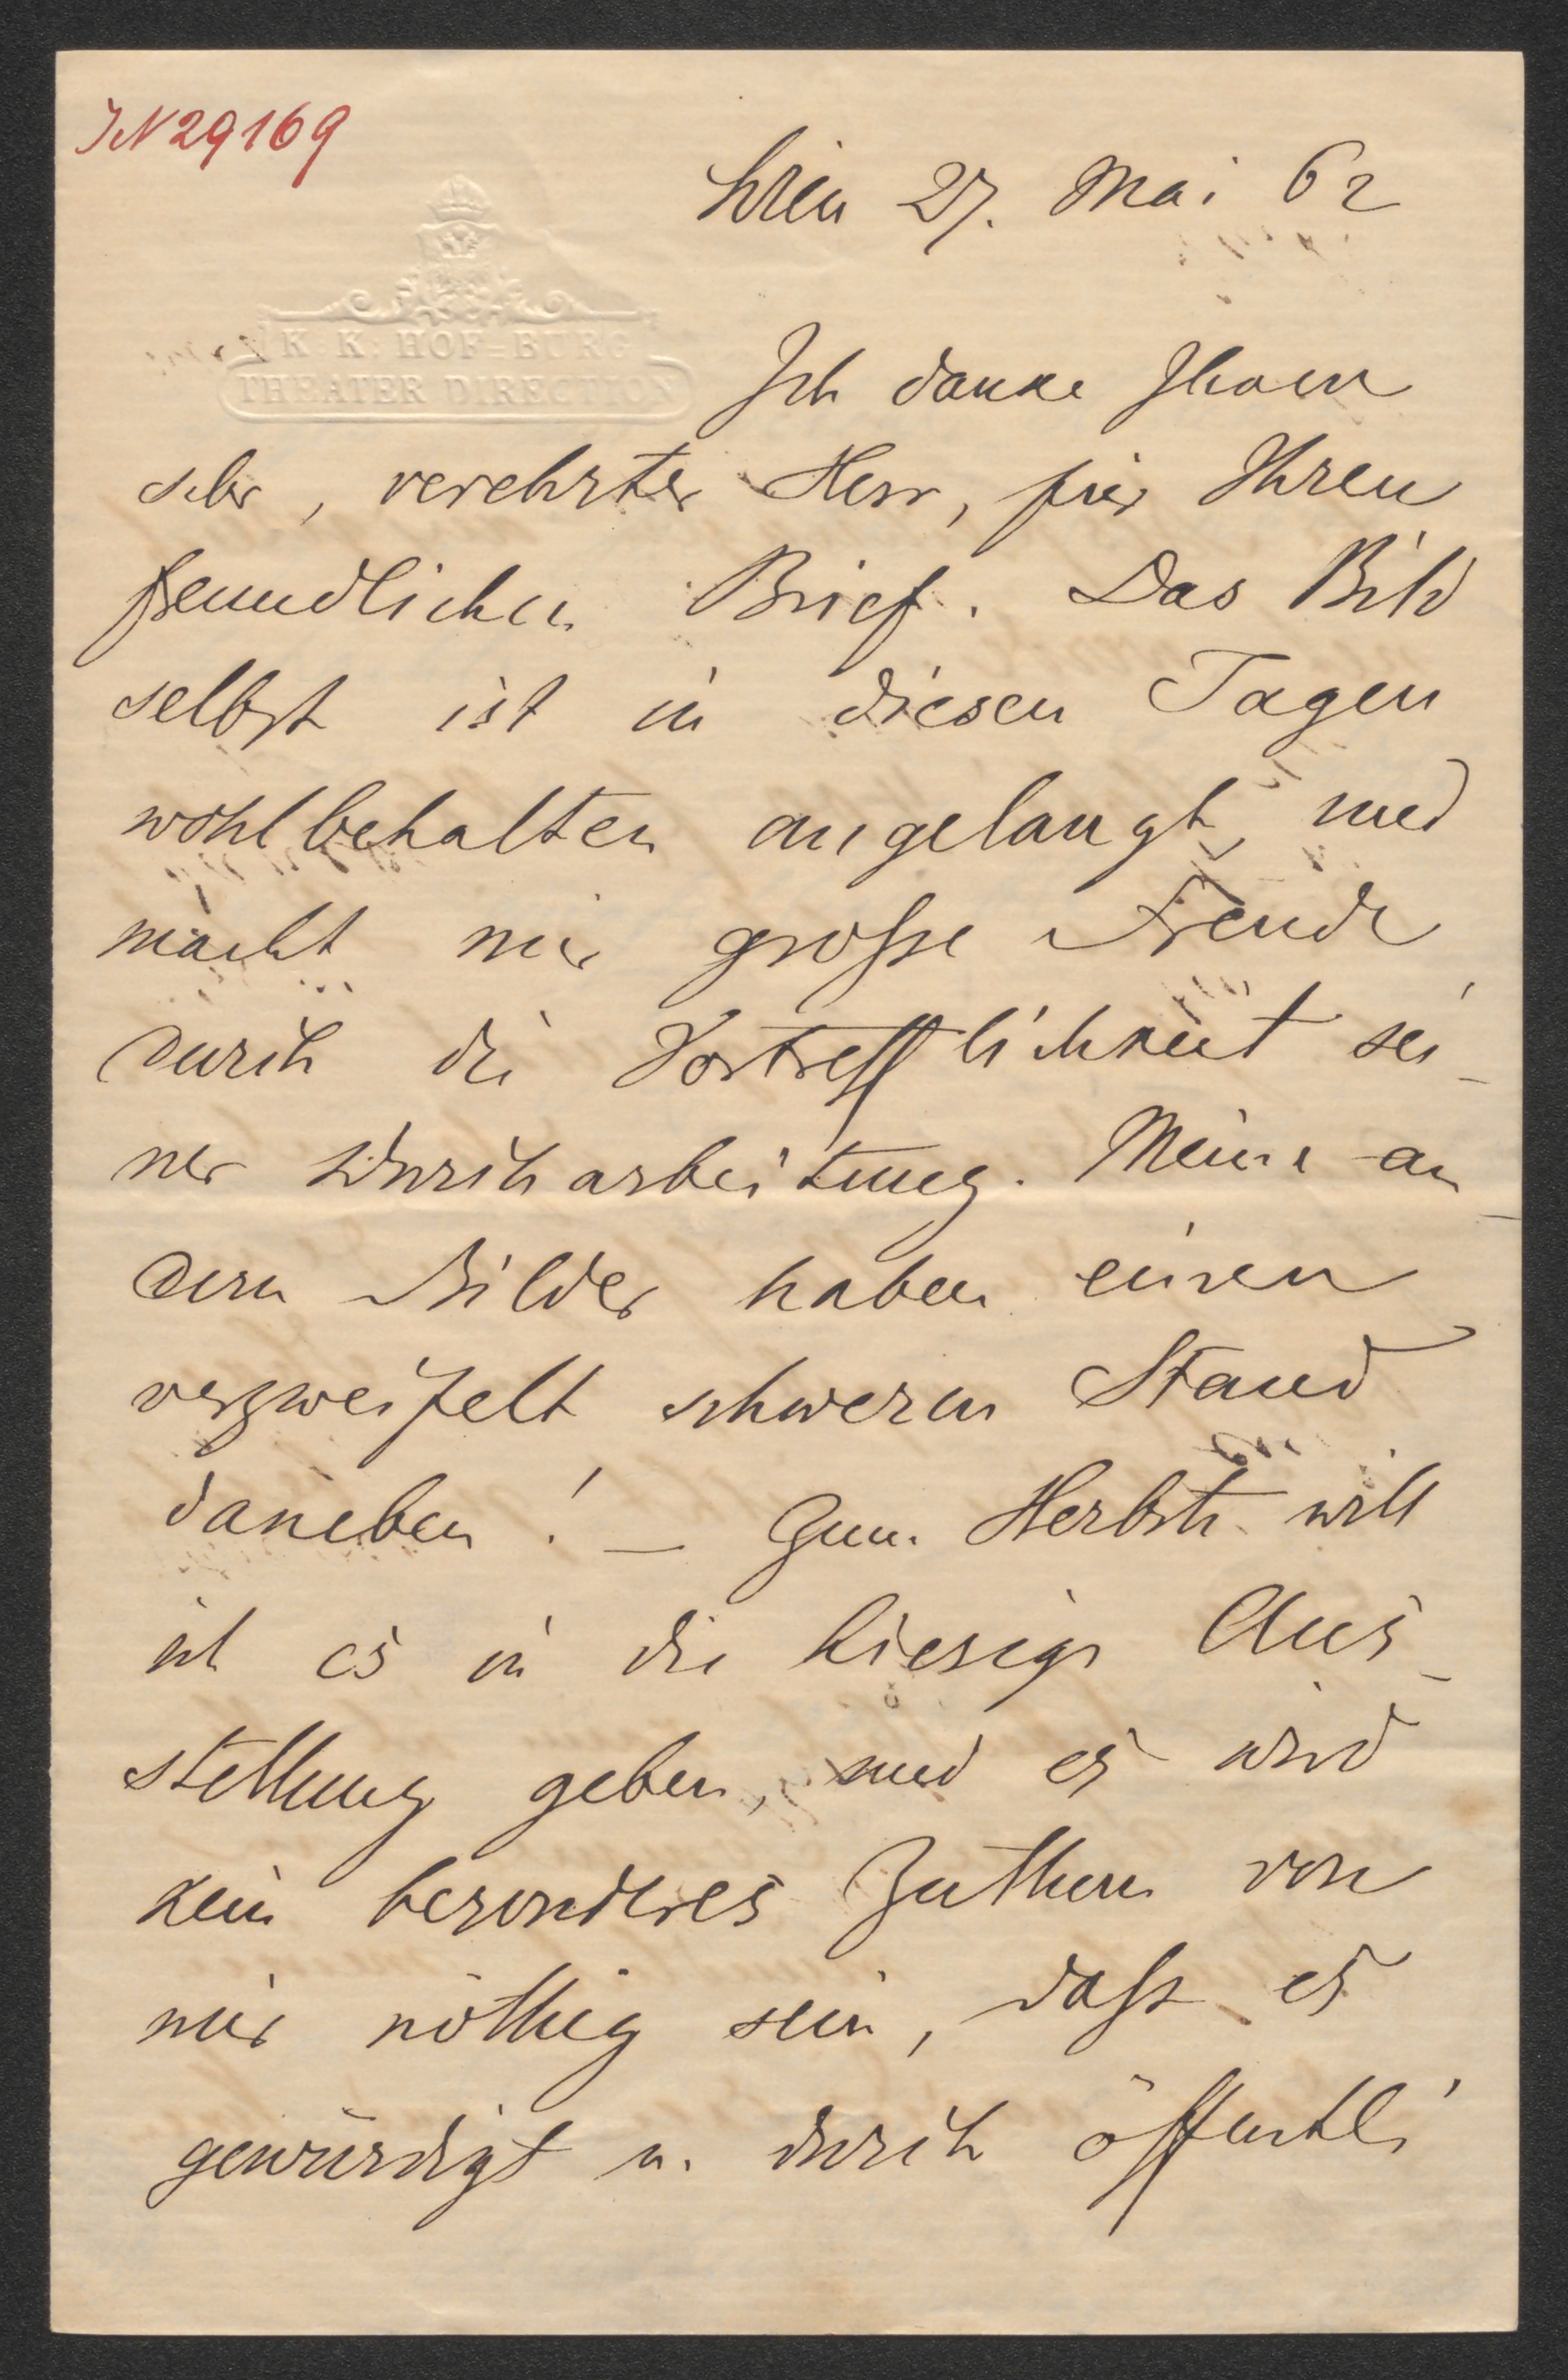 JN 29169
Wien 27. Mai 62
K. K. HOF-BURG
THEATER DIRECTION
Ich danke Ihnen
sehr, verehrter Herr, für Ihren
freundlichen Brief. Das Bild
selbst ist in diesen Tagen
wohlbehalten angelangt, und
macht mir grosse Freude
durch die Vortrefflichkeit sei-
ner Durcharbeitung. Meine an-
dern Bilder haben einen
verzweifelt schweren Stand
daneben! — Zum Herbste will
ich es in die hiesige Aus-
stellung geben, und es wird
kein besonderes Zuthun von
mir nöthig sein, dass es
gewürdigt u. durch öffentli